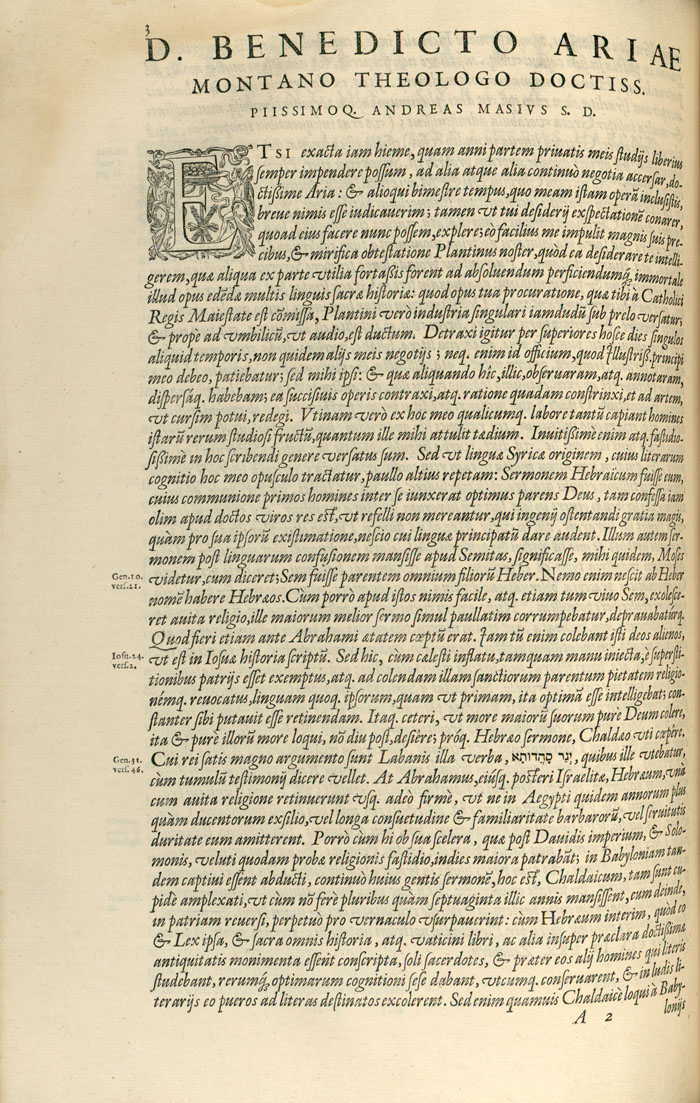 3
D. BENEDICTO ARIAE
MONTANO THEOLOGO DOCTISS.
PIISSIMOQ. ANDREAS MASIVS S. D.
ETSI exacta iam hieme, quam anni partem priuatis meis studijs liberius
semper impendere possum, ad alia atque alia continuò negotia accersar, do-
ctißime Aria: & alioqui bimestre tempus, quo meam istam operã inclusistis,
breue nimis esse iudicauerim; tamen vt tui desiderij exspectationẽ conarer,
quoad eius facere nunc possem, explere; eò facilius me impulit magnis suis pre-
cibus, & mirifica obtestatione Plantinus noster, quòd ea desiderare te intelli-
gerem, quæ aliqua ex parte vtilia fortaßis forent ad absoluendum perficiendumq́; immortale
illud opus edẽdæ multis linguis sacræ historiæ: quod opus tua procuratione, quæ tibi à Catholici
Regis Maiestate est cõmissa, Plantini verò industria singulari iamdudũ sub prelo versatur;
& propè ad vmbilicũ, vt audio, est ductum. Detraxi igitur per superiores hosce dies singulos
aliquid temporis, non quidem alijs meis negotijs; neq. enim id officium, quod Illustriß. principi
meo debeo, patiebatur; sed mihi ipsi: & quæ aliquando hic, illic, obseruaram, atq. annotaram,
dispersáq. habebam; ea succisiuis operis contraxi, atq. ratione quadam constrinxi, et ad artem,
vt cursim potui, redegi. Vtinam verò ex hoc meo qualicumq. labore tantũ capiant homines
istarũ rerum studiosi fructũ, quantum ille mihi attulit tædium. Inuitißimè enim atq. fastidio-
sißimè in hoc scribendi genere versatus sum. Sed vt linguæ Syricæ originem, cuius literarum
cognitio hoc meo opusculo tractatur, paullo altius repetam: Sermonem Hebraicum fuisse eum,
cuius communione primos homines inter se iunxerat optimus parens Deus, tam confessa iam
olim apud doctos viros res est, vt refelli non mereantur, qui ingenij ostentandi gratia magis,
quàm pro sua ipsorũ existimatione, nescio cui linguæ principatũ dare audent. Illum autem ser-
monem post linguarum confusionem mansisse apud Semitas, significasse, mihi quidem, Moses
Gen. 10. vers. 21.
videtur, cum diceret; Sem fuisse parentem omnium filiorũ Heber. Nemo enim nescit ab Heber
nomẽ habere Hebræos. Cùm porrò apud istos nimis facile, atq. etiam tum viuo Sem, exolesce-
ret auita religio, ille maiorum melior sermo simul paullatim corrumpebatur, deprauabaturq́.
Quod fieri etiam ante Abrahami ætatem cœptũ erat. Iam tũ enim colebant isti deos alienos,
Iosu. 24. vers. 2.
vt est in Iosuæ historia scriptũ. Sed hic, cùm cælesti inflatu, tamquam manu iniecta, è supersti-
tionibus patrijs esset exemptus, atq. ad colendam illam sanctiorum parentum pietatem religio-
némq. reuocatus, linguam quoq. ipsorum, quam vt primam, ita optimã esse intelligebat; con-
stanter sibi putauit esse retinendam. Itaq. ceteri, vt more maiorũ suorum purè Deum colere,
ita & purè illorũ more loqui, nõ diu post, desiêre; próq. Hebræo sermone, Chaldæo vti cœpêre.
Gen. 31. vers. 46.
Cui rei satis magno argumento sunt Labanis illa verba, יגר סהדותא, quibus ille vtebatur,
cùm tumulũ testimonij dicere vellet. At Abrahamus, eiúsq. posteri Israelitæ, Hebræum, vnà
cum auita religione retinuerunt vsq. adeò firmè, vt ne in Aegypti quidem annorum plus
quàm ducentorum exsilio, vel longa consuetudine & familiaritate barbarorũ, vel seruitutis
duritate eum amitterent. Porrò cùm hi ob sua scelera, quæ post Dauidis imperium, & Solo-
monis, veluti quodam probæ religionis fastidio, indies maiora patrabãt; in Babyloniam tan-
dem captiui essent abducti, continuò huius gentis sermonẽ, hoc est, Chaldaicum, tam sunt cu-
pidè amplexati, vt cùm nõ ferè pluribus quàm septuaginta illic annis mansissent, eum deinde,
in patriam reuersi, perpetuò pro vernaculo vsurpauerint: cùm Hebræum interim, quòd eo
& Lex ipsa, & sacra omnis historia, atq. vaticini libri, ac alia insuper præclara doctißimæ
antiquitatis monimenta essent conscripta, soli sacerdotes, & præter eos alij homines qui literis
studebant, rerumq́; optimarum cognitioni sese dabant, vtcumq. conseruarent, & in ludis li-
terarijs eo pueros ad literas destinatos excolerent. Sed enim quamuis Chaldaicè loqui à Baby-
A 2
lonijs